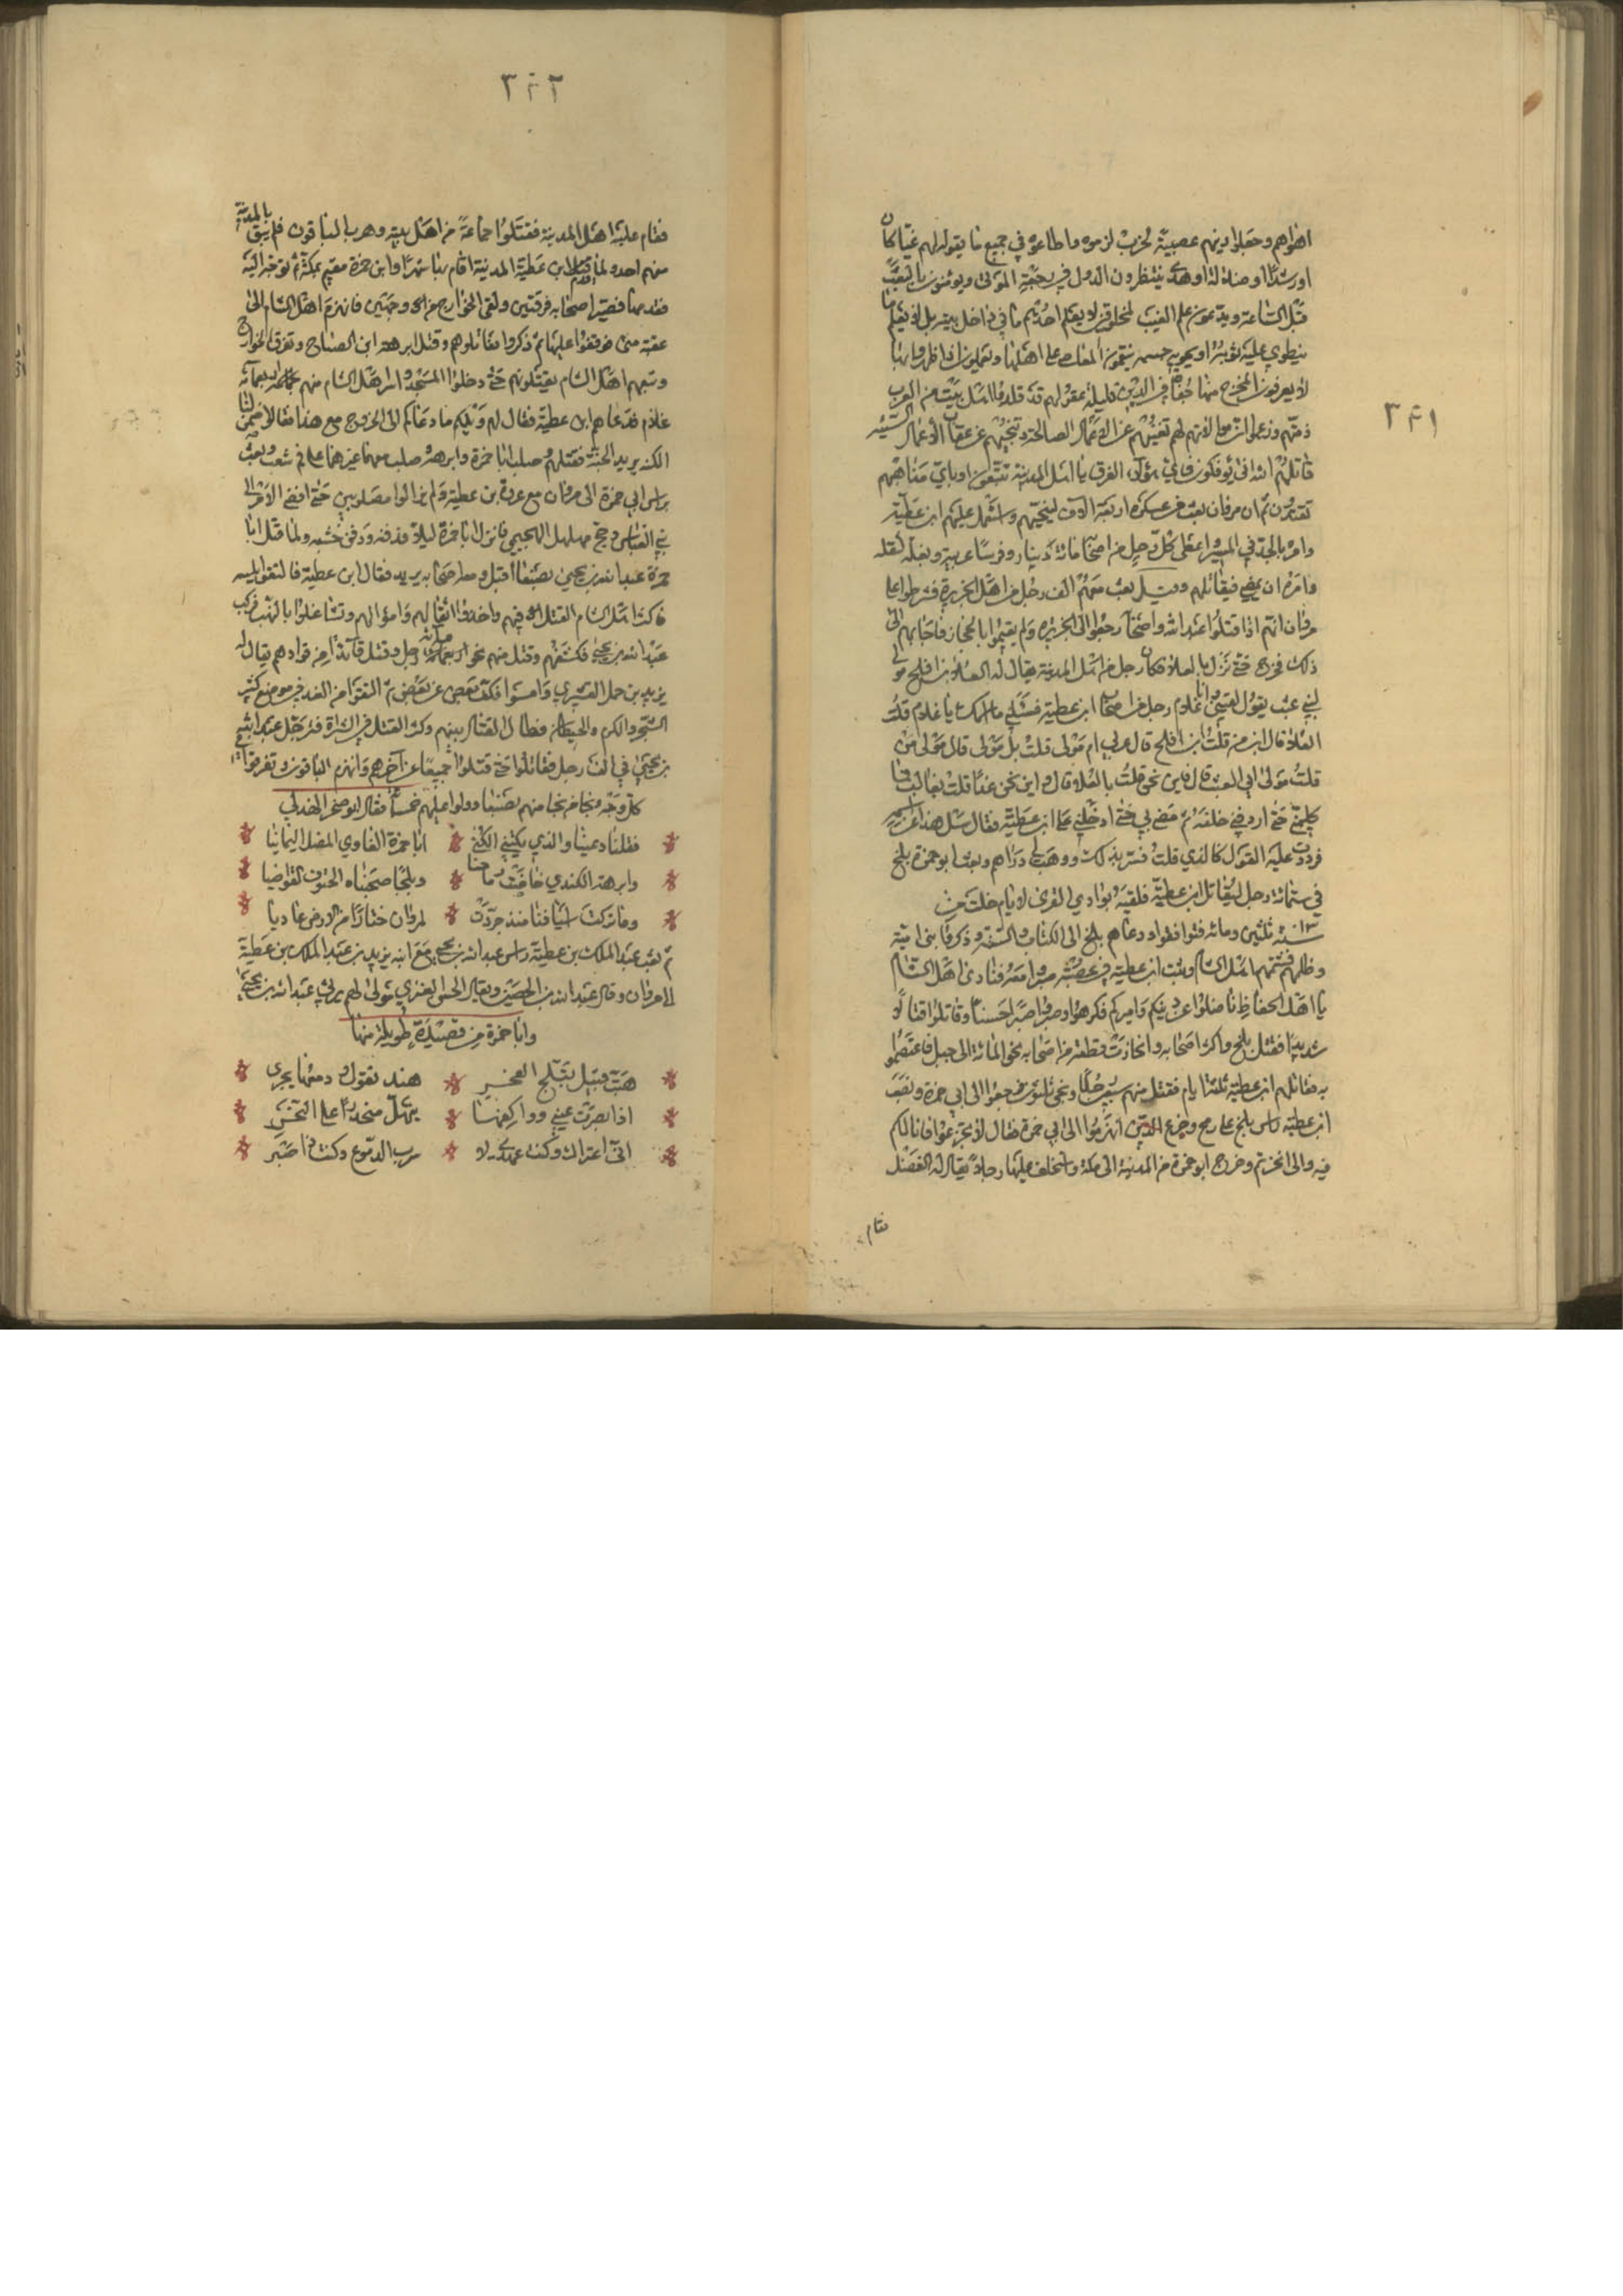 ٣٤١
اهواهم وجعلوا دينهم عصبية لحزب لزموه واطاعوه في جميع ما يقوله لهم غيا كان
او رشدا او ضلالة او هدى ينتظرون الدول في رجعة الموتى ويؤمنون بالبعث
قبل الساعة ويدعون علم الغيب لمخلوق لا يعلم احدهم ما في داخل بيته بل لا يعلم ما
ينطوي عليه ثوبه او يحويه جسمه ينقمون المعاصي على اهلها ويعملون اذا ظهروا بها
لا يعرفون المخرج منها جفاة في الدين قليلة عقولهم قد قلدوا اهل بيت من العرب
دينهم وزعموا ان موالاتهم لهم تغنيهم عن الاعمال الصالحة وتنجيهم عن عقاب الاعمال السيئه
قاتلهم الله انى يؤفكون فاي هؤلاء الفرق يا اهل المدينة تتبعون او باي مذاهبهم
تقتدون ثم ان مروان بعث من عسكره اربعة الاف لينتخبهم واستعمل عليهم ابن عطية
وامره بالجد في المسير واعطى كل رجل من اصحابه مائة دينار وفرسا عربية وبغلا لثقله
وامره ان يمضي فيقاتلهم وقيل بعث معهم الف رجل من اهل الجزيرة فشرطوا على
مروان انهم اذا قتلوا عبد الله واصحابه رجعوا الى الجزيره ولم يقيموا بالحجاز فاجابهم الى
ذلك فخرج حتى نزل بالعلا فكان رجل من اهل المدينة يقال له العلا بن افلح مولى
لبني عبث يقول لقيني وانا غلام رجل من اصحاب ابن عطية فسئلني ما اسمك يا غلام قلت
العلا قال ابن من قلت ابن افلح قال عربي ام مولى قلت بل مولى قال مولى من
قلت مولى ابي الغيث قال فاين نحن قلت بالعلا قال واين نحن غدا قلت بغالب فما
كلمني حتى اردفني خلفه ثم مضى بي حتى ادخلني على ابن عطية فقال سل هذا عن اسمه
فرددت عليه القول كالذي قلت فسر بذلك ووهب لي دراهم وبعث ابو حمزة بلج
في ستمائة رجل ليقاتل ابن عطية فلقيه بوادي القرى لايام خلت من
سنة ثلثين ومائه فتواقفوا ودعاهم بلج الى الكتاب والسنة وذكر بني امية
وظلمهم فشتمهم اهل الشام وثبت ابن عطية في عصبة صبروا معه فنادى اهل الشام
يا اهل الحفاظ ناضلوا عن دينكم واميركم فكرهوا وصبروا صبرا حسنا وقاتلوا قتالا
شديدا فقتل بلج واكثر اصحابه وانحازت قطعة من اصحابه نحو المائة الى جبل فاعتصموا
به فقاتلهم ابن عطية ثلثة ايام فقتل منهم سبعين رجلا ونجى ثلثون فرجعوا الى ابي حمزة ونصب
ابن عطية راس بلج على رمح وجزع الذين انهزموا الى ابي حمزة فقال لا تجزعوا فانا لكم
فيه والى انحزتم وخرج ابو حمزة من المدينة الى مكة واستخلف عليها رجلا يقال له الفضل
فقام
٣٤٢
فقام عليه اهل المدينة فقتلوا جماعة من اهل بيته وهرب الباقون فلم يبق بالمدينة
منهم احد ولما قدم ابن عطية المدينة اقام بها شهرا وابن حمزة مقيم بمكة ثم توجه اليه
فقدمها فصير اصحابه فرقتين ولقى الخوارج من وجهين فانهزم اهل الشام الى
عقبة منى فوقفوا عليها ثم ذكروا فقاتلوهم وقتل ابرهة ابن الصباح وتفرق الخوارج
وتبعهم اهل الشام يقتلونهم حتى دخلوا المسجد واسر اهل الشام منهم اربعمائه
غلام فدعاهم ابن عطية فقال لهم ويلكم ما دعاكم الى الخروج مع هذا فقالوا ضمن لنا
الكنه يريد الجنة فقتلهم وصلب ابا حمزة وابرهة وصلب معهما غيرهما على فم شعب وبعث
براس ابي حمزة الى مروان مع عروة بن عطية ولم يزالوا مصلوبين حتى افضى الامر الى
بني العباس وحج مهلهل الهجيمي فانزل ابا حمزة ليلا فدفنه ودفن خشبه ولما قتل ابا
حمزة عبد الله بن يحيى بصنعا اقبل ومعه اصحابه يريد فقال ابن عطية فالتقوا بليسه
فاكثر اهل الشام القتل فيهم واخذوا اثقالهم واموالهم وتشاغلوا بالنهب فركب
عبد الله بن يحيى فكشفهم وقتل منهم نحو اربعمائة رجل وقتل قائدا من قوادهم يقال له
يزيد بن حمل القشيري وامسوا فكف بعض عن بعض ثم التقوا من الغد في موضع كثير
الشجر والكرم والحيطان فطال القتال بينهم وكثر القتل في الشراة فترجل عبد الله
بن يحيى في الف رجل فقاتلوا حتى قتلوا جميعا عن آخرهم وانهزم الباقون وتفرقوا في
كل وجه ونجا من نجا منهم بصنعا وولوا عليهم خمسا فقال ابو صخر الهذلي
فقلنا دعينا والذي يكتني الكنى * ابا حمزة الغاوي المضل اليمانيا
وابرهة الكندي خاضت رماحنا * وبلجا صبحناه الحتوف القواضيا
وما تركت اسيافنا منذ جردت * لمروان ختارا من الارض عاديا
ثم بعث عبد الملك بن عطية راس عبد الله بن يحيى مع ابنه يزيد بن عبد الملك بن عطية
الى مروان وقال عبد الله بن الحصين ويقال الحسن العنبري مولى لهم يرثي عبد الله بن يحيى
وابا حمزة من قصيدة طويلة منها
هبت قبيل تبلج الفجر * هند تقول ودمعها يجرى
اذ ابصرت عيني وواكفها * ينهل منحدرا على النحر
انى اعتراك وكنت عهدى لا * سرب الدموع وكنت ذا صبر